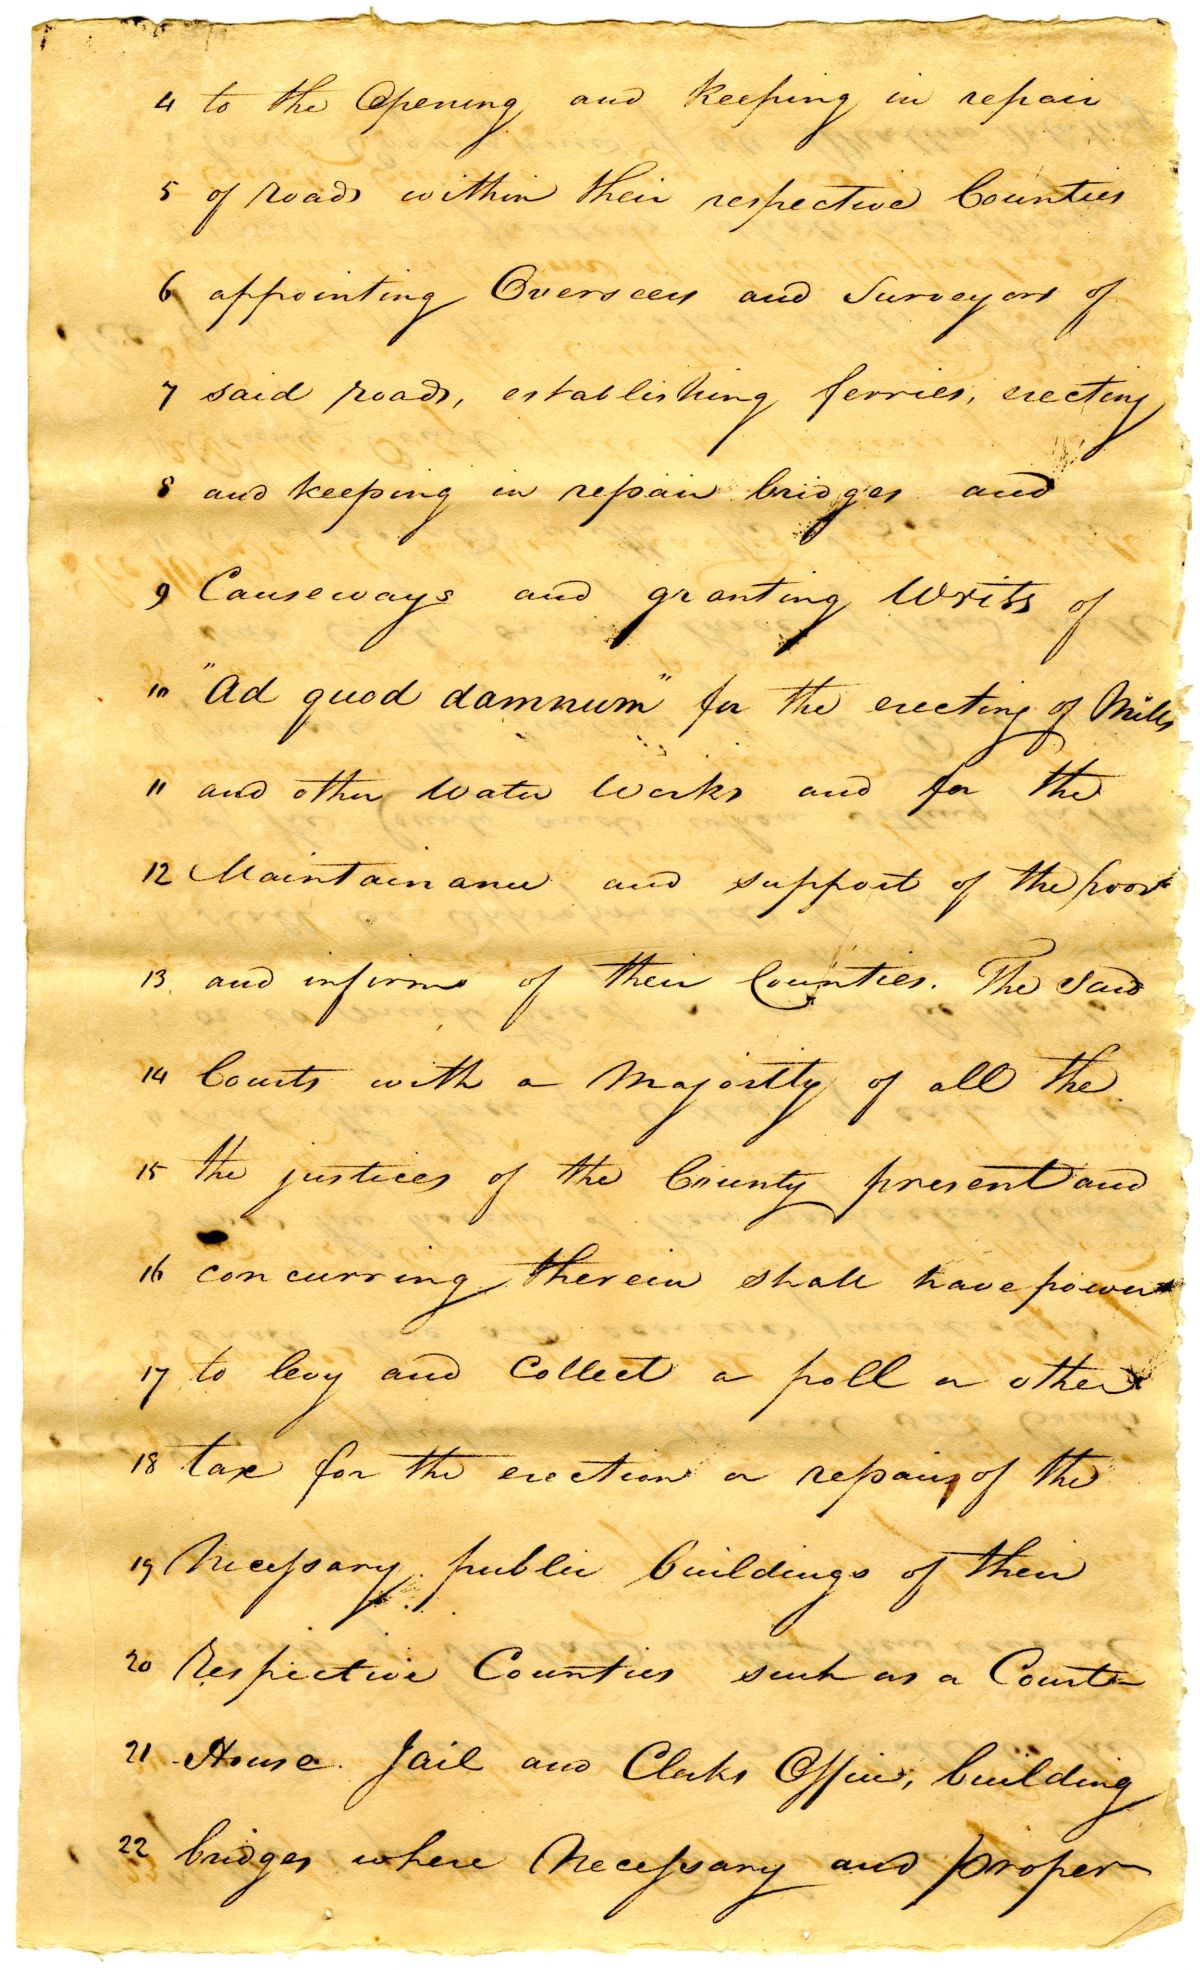 4 to the Opening and keeping in repair
5 of roads within their respective Counties
6 appointing Overseers and Surveyors of
7 said roads, establishing ferries, erecting
8 and keeping in repair bridges and
9 Causeways and granting Writs of
10 "Ad quod damnum" for the erecting of Mills
11 and other Water Works and for the
12 Maintainance and support of the poor
13 and infirm of their Counties. The said
14 Courts with a Majority of all the
15 the justices of the County present and
16 concurring therein shall have power
17 to levy and Collect a poll or other
18 tax for the erection or repairs of the
19 Necessary public buildings of their
20 Respective Counties such as a Court
21 House. Jail and Clerks Office, building
22 bridges where Necessary and proper